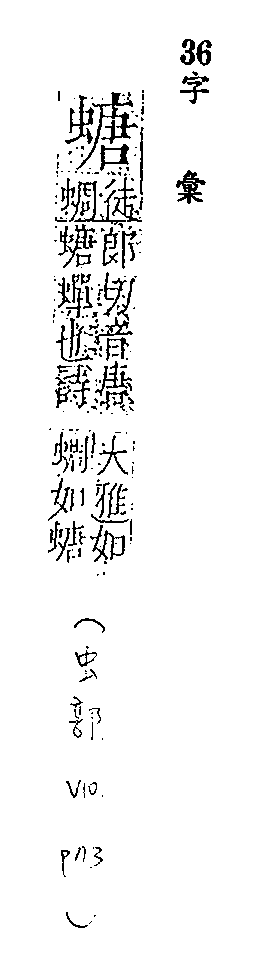 36
字彙
螗
徒郎切音唐
蜩螗蟬也詩
大雅如
蜩如螗
(虫部 V10. p113)